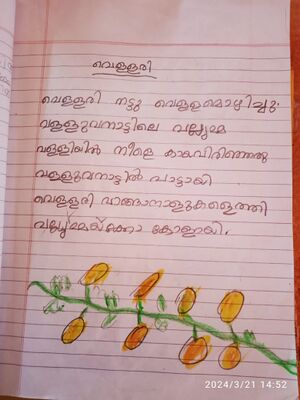 വെള്ളരി
വെള്ളരി നട്ടു വെള്ളമൊഴിച്ചു
വള്ളുവനാട്ടിലെ വല്ല്യമ്മ
വള്ളിയിൽ നീളെ കായവിരിഞ്ഞതു
വള്ളുവനാട്ടിൽ പാട്ടായി
വെള്ളരി വാങ്ങാനാളുകളെത്തി
വല്ല്യമ്മയ്ക്കോ കോളായി.
2024/3/21 14:52